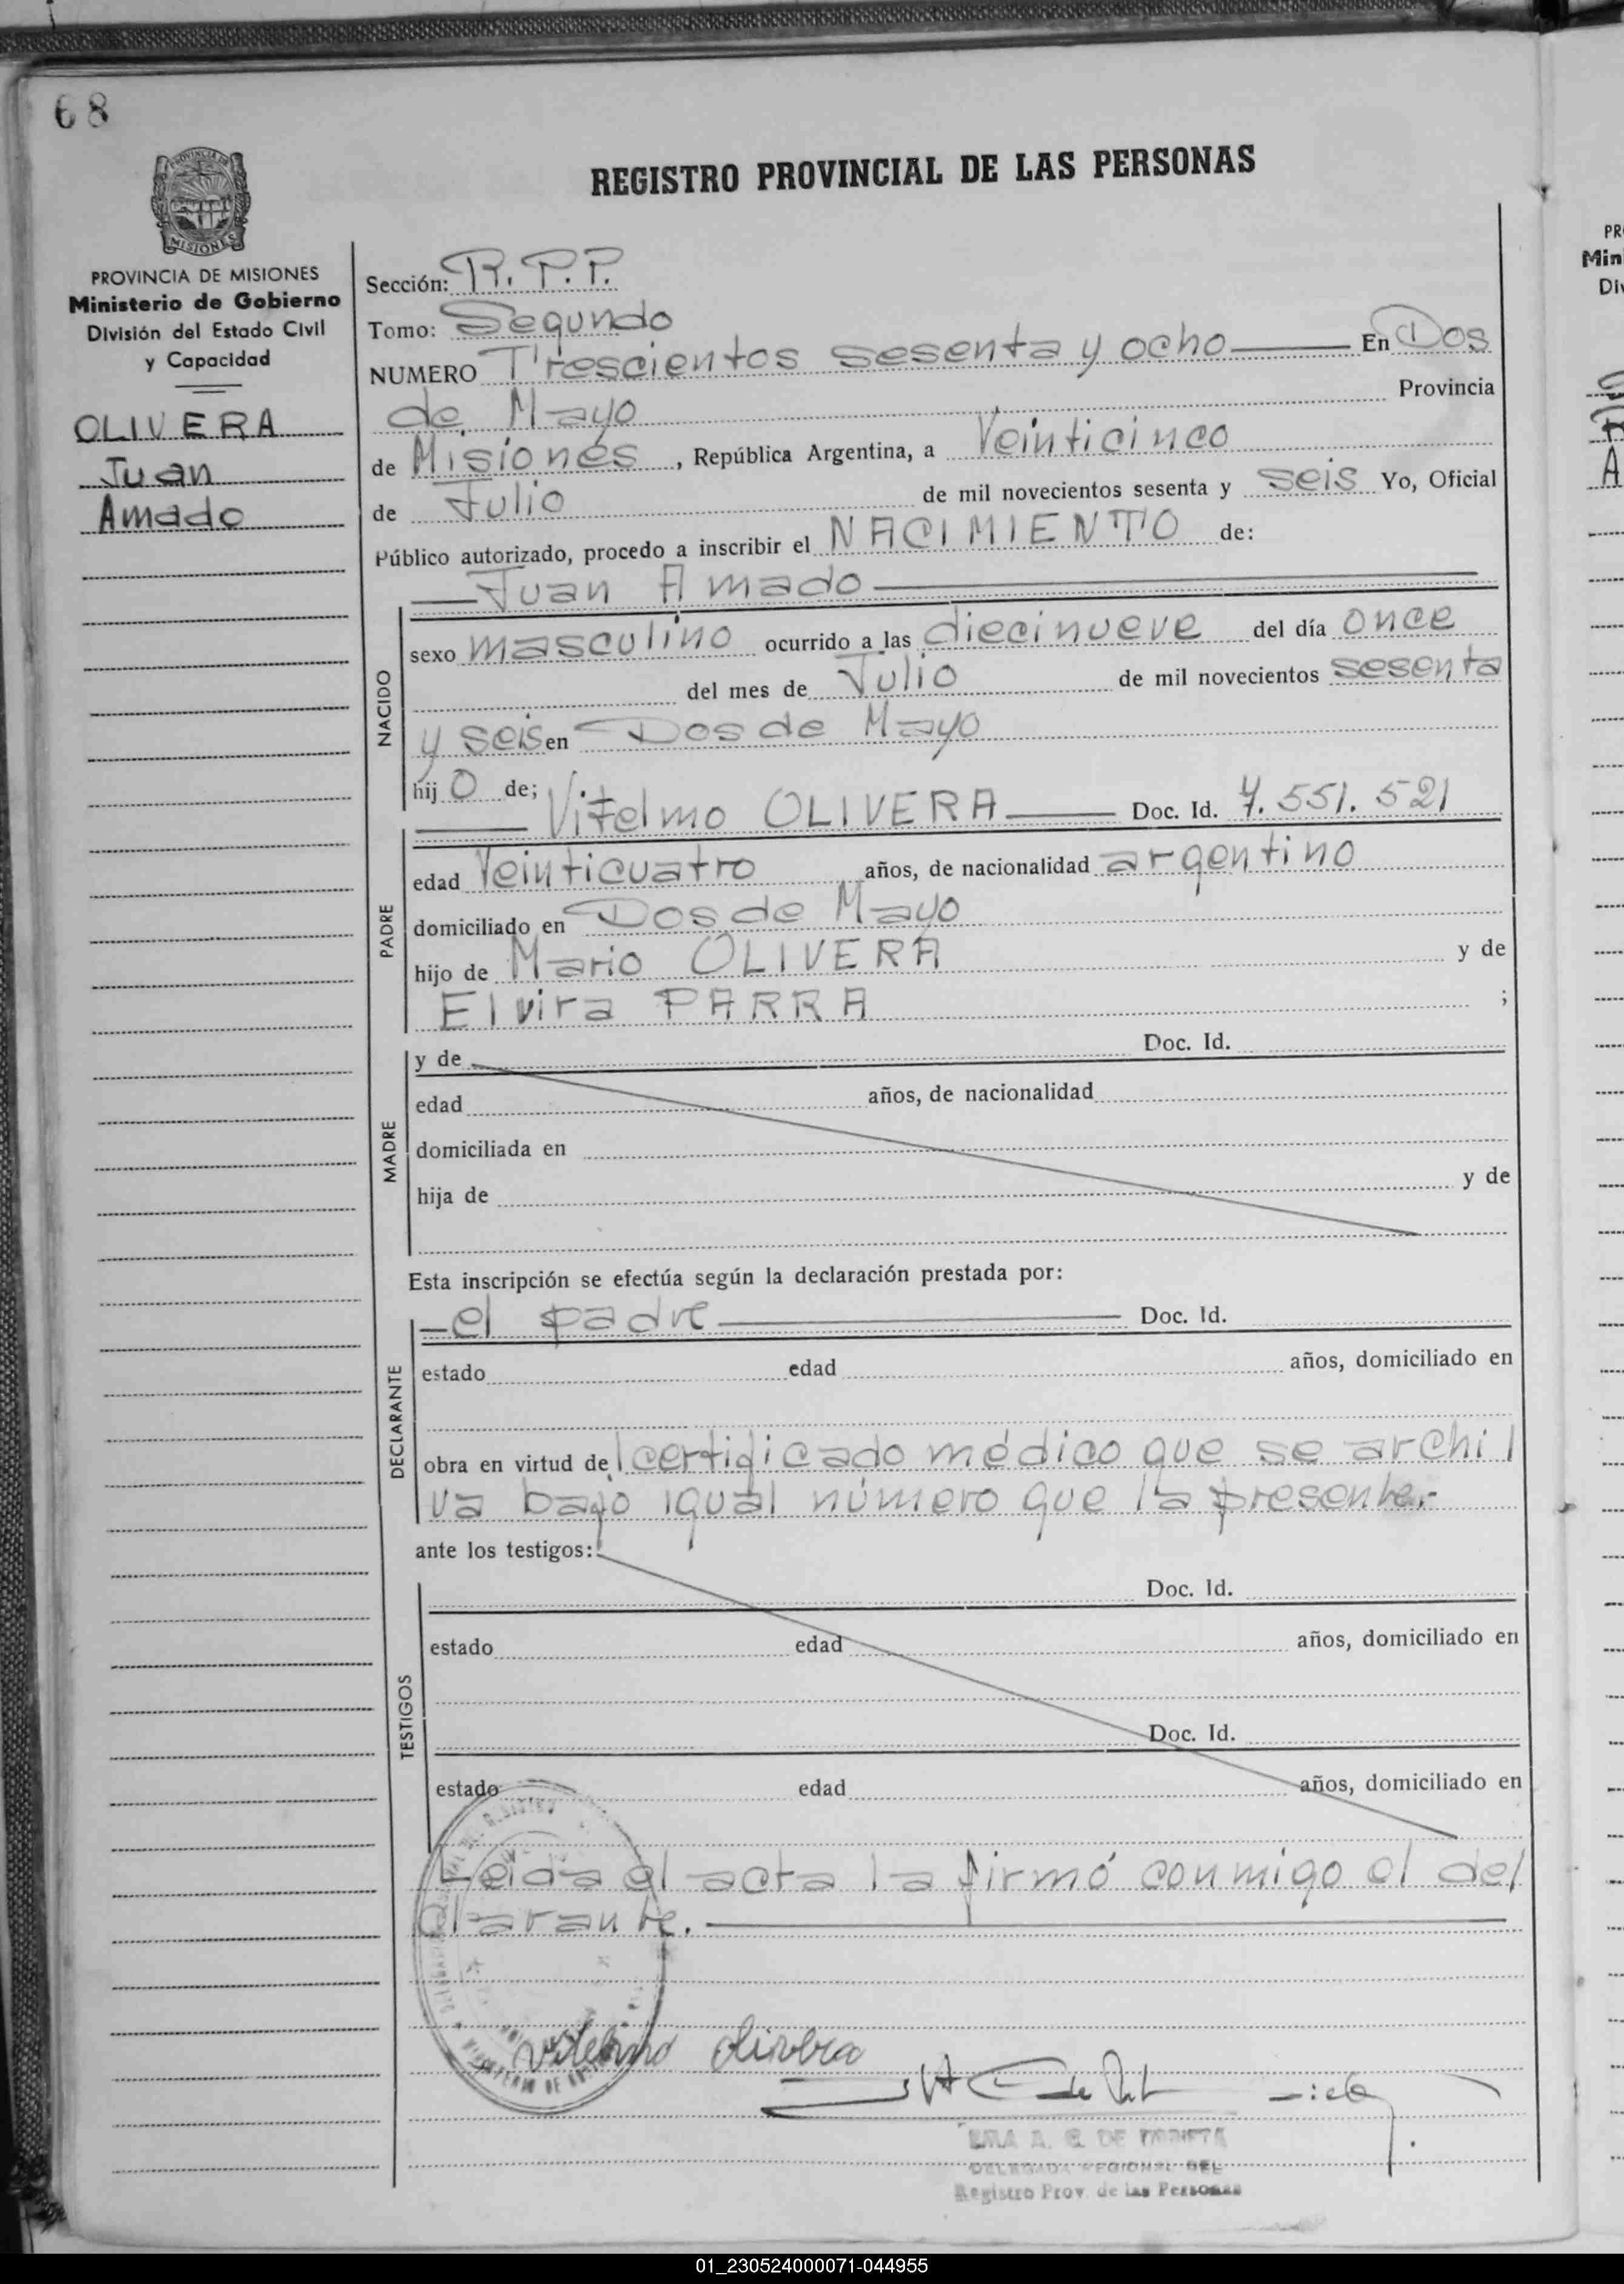 68
REGISTRO PROVINCIAL DE LAS PERSONAS
PROVINCIA DE MISIONES
Ministerio de Gobierno
División del Estado Civil
y Capacidad
OLIVERA
Juan
Amado
Sección: R. P. P.
Tomo: Segundo
NUMERO Trescientos sesenta y ocho En Dos
de Mayo Provincia
de Misiones, República Argentina, a Veinticinco
de Julio de mil novecientos sesenta y seis Yo, Oficial
Público autorizado, procedo a inscribir el NACIMIENTO de:
Juan Amado
NACIDO
sexo masculino ocurrido a las diecinueve del día once
del mes de Julio de mil novecientos sesenta
y seis en Dos de Mayo
hijo de;
PADRE
Vitelmo OLIVERA Doc. Id. 7.551.521
edad Veinticuatro años, de nacionalidad argentino
domiciliado en Dos de Mayo
hijo de Mario OLIVERA y de
Elvira PARRA ;
MADRE
y de Doc. Id.
edad años, de nacionalidad
domiciliada en
hija de y de
Esta inscripción se efectúa según la declaración prestada por:
DECLARANTE
el padre Doc. Id.
estado edad años, domiciliado en
obra en virtud del certificado médico que se archi
va bajo igual número que la presente.-
ante los testigos:
TESTIGOS
Doc. Id.
estado edad años, domiciliado en
Doc. Id.
estado edad años, domiciliado en
Leida el acta la firmó conmigo el de
clarante.
Vitelmo Olivera
DELEGADA REGIONAL DEL
Registro Prov. de las Personas
PR
Min
Di
A
01_230524000071-044955